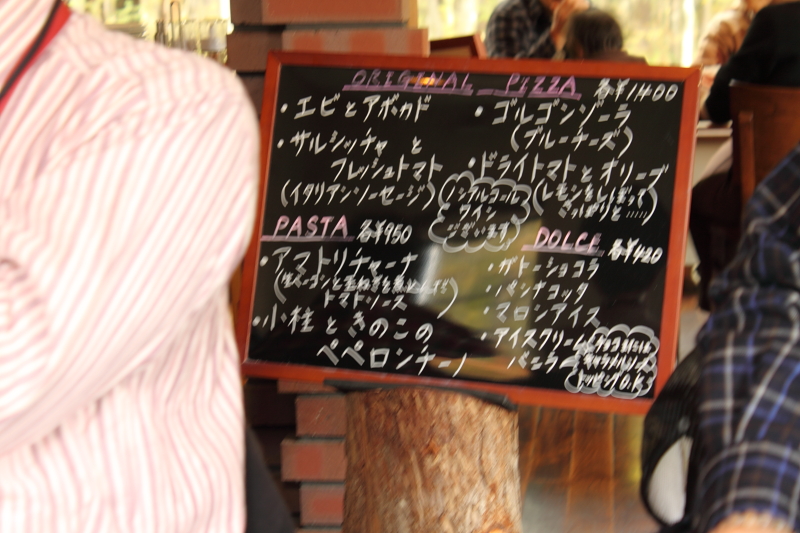 ORIGINAL PIZZA 各¥1400
・エビとアボカド
・サルシッチャと
フレッシュトマト
(イタリアンソーセージ)
・ゴルゴンゾーラ
(ブルーチーズ)
・ドライトマトとオリーブ
(レモンをしぼって
さっぱりと.....)
ノンアルコール
ワイン
ございます
PASTA 各¥950
・アマトリチャーナ
(生ベーコンと玉ねぎを
トマトソース)
・小柱ときのこの
ペペロンチーノ
DOLCE 各¥420
・ガトーショコラ
・パンナコッタ
・マロンアイス
・アイスクリーム
バニラ
キャラメルソース
トッピングO.K!